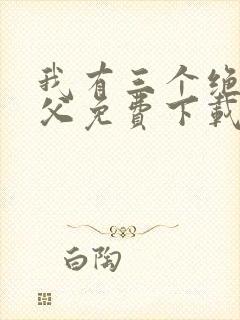 我有三个绝
父免费下载
白陶